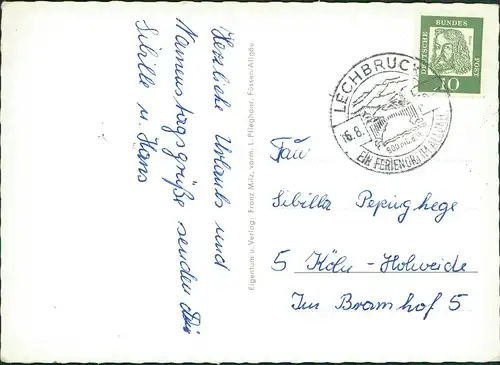 Herzliche Urlaubs und
Namenstagsgrüße senden Dir
Sibille u. Hans
Eigentum u. Verlag: Franz Milz, vorm. L. Pfleghaar, Füssen-Allgäu
DEUTSCHE
BUNDES
POST
10
LECHBRUCK
16.8.
EIN FERIENORT
Frau
Sibilla Pepinghege
5 Köln-Holweide
Im Bramhof 5